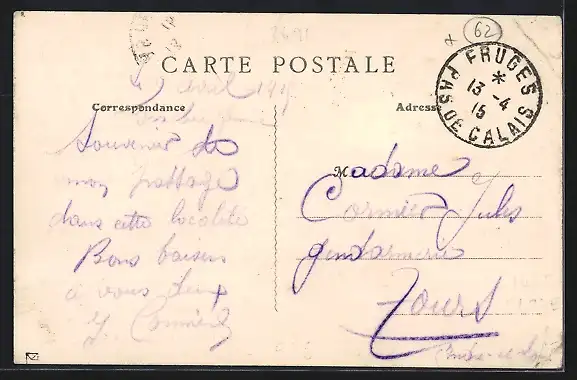 CARTE POSTALE
62
FRUGES
13 - 4
15
PAS DE CALAIS
Correspondance
Adresse
avril 191
Souvenir de
mon passage
dans cette localité
Bons baisers
à vous deux
J. Cormier
Madame
Cormier Jules
gendarmerie
Tours